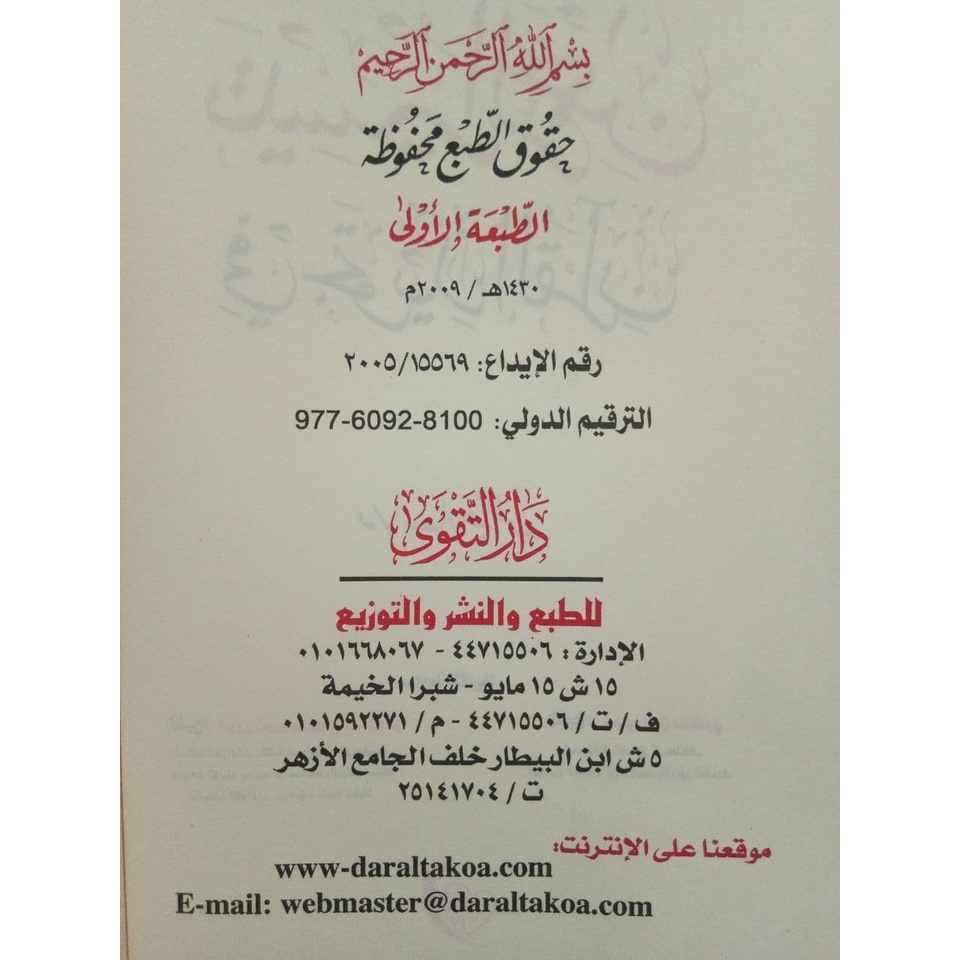 بِسْمِ اللَّهِ الرَّحْمَنِ الرَّحِيمِ
حُقُوق الطَّبْع مَحْفُوظَة
الطَّبْعَة الأُوْلَى
١٤٣٠هـ / ٢٠٠٩م
رقم الإيداع: ٢٠٠٥/١٥٥٦٩
الترقيم الدولي: 977-6092-8100
دَارُ التَّقْوَى
للطبع والنشر والتوزيع
الإدارة : ٤٤٧١٥٥٠٦ - ٠١٠١٦٦٨٠٦٧
١٥ ش ١٥ مايو - شبرا الخيمة
ف / ت / ٤٤٧١٥٥٠٦ - م / ٠١٠١٥٩٢٢٧١
٥ ش ابن البيطار خلف الجامع الأزهر
ت / ٢٥١٤١٧٠٤
موقعنا على الإنترنت:
www-daraltakoa.com
E-mail: webmaster@daraltakoa.com